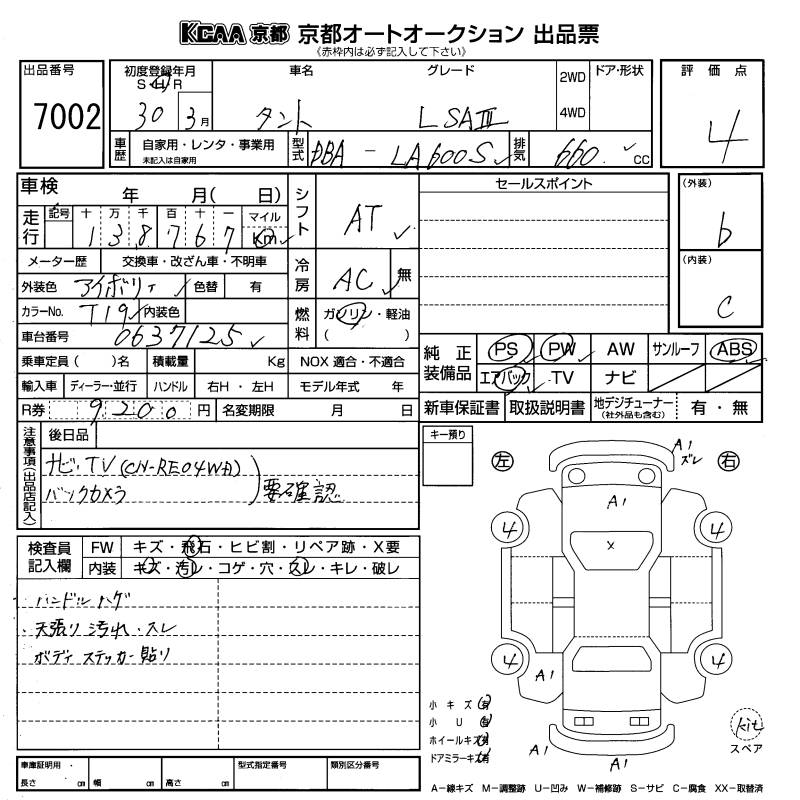 KCAA 京都 京都オートオークション 出品票
《赤枠内は必ず記入して下さい》
出品番号 7002
初度登録年月 S H R 30 3月
車名 タント
グレード L SAⅢ
2WD 4WD
ドア・形状
評価点 4
車歴 自家用・レンタ・事業用 未記入は自家用
型式 DBA - LA600S
排気 660 cc
車検 年 月( 日)
走行 記号 十 万 千 百 十 一 マイル km
138767
シフト AT
セールスポイント
(外装) b
(内装) c
メーター歴 交換車・改ざん車・不明車
冷房 AC 無
外装色 アイボリィ 色替 有
カラーNo. T19 内装色
燃料 ガソリン・軽油 ( )
車台番号 0637125
乗車定員( )名 積載量 Kg NOX 適合・不適合
純正装備品 PS PW AW サンルーフ ABS
エアバック TV ナビ
輸入車 ディーラー・並行 ハンドル 右H・左H モデル年式 年
R券 9200円 名変期限 月 日
新車保証書 取扱説明書 地デジチューナー (社外品も含む) 有・無
注意事項(出品店記入)
後日品
ナビ・TV (CN-RE04WD)
バックカメラ
要確認
キー預り
左 右
A1 ズレ
A1
×
4 4
4 4
A1
A1 A1
検査員記入欄
FW キズ・飛石・ヒビ割・リペア跡・X要
内装 キズ・汚レ・コゲ・穴・スレ・キレ・破レ
・ハンドルハゲ
・天張り汚れ・スレ
ボディステッカー貼り
小キズ(有)
小U(有)
ホイールキズ(有)
ドアミラーキズ(有)
kit
スペア
車庫証明用・ 長さ cm 幅 cm 高さ cm
型式指定番号
類別区分番号
A−線キズ M−調整跡 U−凹み W−補修跡 S−サビ C−腐食 XX−取替済